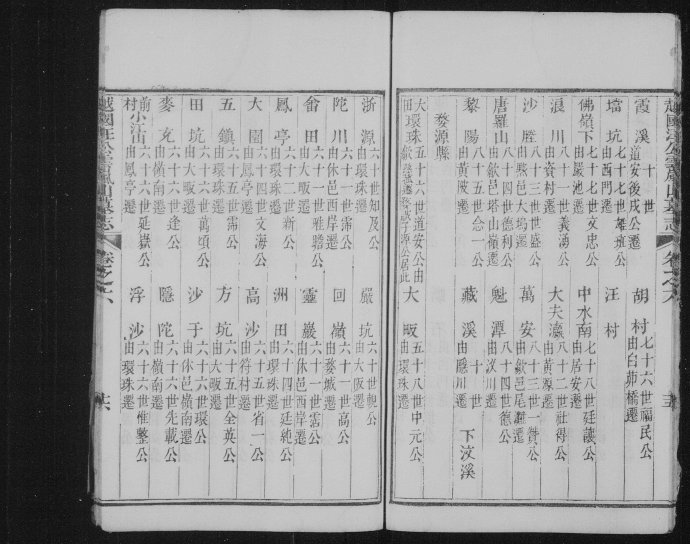 霞溪 十世 道安後戌公遷 胡村 七十六世福民公 由白茆橋遷
壇坑 七十七世雄班公 由西門遷 汪村
佛嶺下 七十七世友忠公 由巖池遷 中水南 七十八世廷護公 由居安遷
浪川 八十一世義湧公 由資村遷 大夫瀛 八十二世社得公 由黃源遷
沙塍 八十三世世盛公 由黟邑大塢遷 萬安 八十三世一贊公 由歙邑尾灘遷
唐羅山 八十四世德利公 由歙邑塔山嶺遷 魁潭 八十四世德公 由汊川遷
黎陽 八十五世念一公 由黃陂遷 藏溪 由隱川遷 下汶溪
婺源縣
大環珠田 五十六世道安公由 大畈 五十八世中元公 由環珠遷
越國汪公雲嵐山墓志 卷之六
浙源 六十世知及公 由環珠遷 嚴坑 六十世貺公 由大畈遷
陀川 六十一世霈公 由休邑西岸遷 回嶺 六十一世高公 由婺城遷
畬田 六十一世雅膳公 由環珠遷 靈巖 六十一世霑公 由休邑西岸遷
鳳亭 六十二世新公 由環珠遷 洲田 六十四世廷純公 由環珠遷
大園 六十四世文海公 由鳳亭遷 高沙 六十五世省一公 由符村遷
五鎮 六十五世六公 由大畈遷 方坑 六十五世全英公 由大畈遷
田坑 六十六世萬頃公 由大畈遷 沙于 六十六世環公 由休邑嶺南遷
麥充 六十六世逢公 由嶺南遷 隱陀 六十六世先載公 由嶺南遷
前小江村 六十六世延嶽公 由鳳亭遷 浮沙 六十六世惟整公 由環珠遷
越國汪公雲嵐山墓志 卷之六